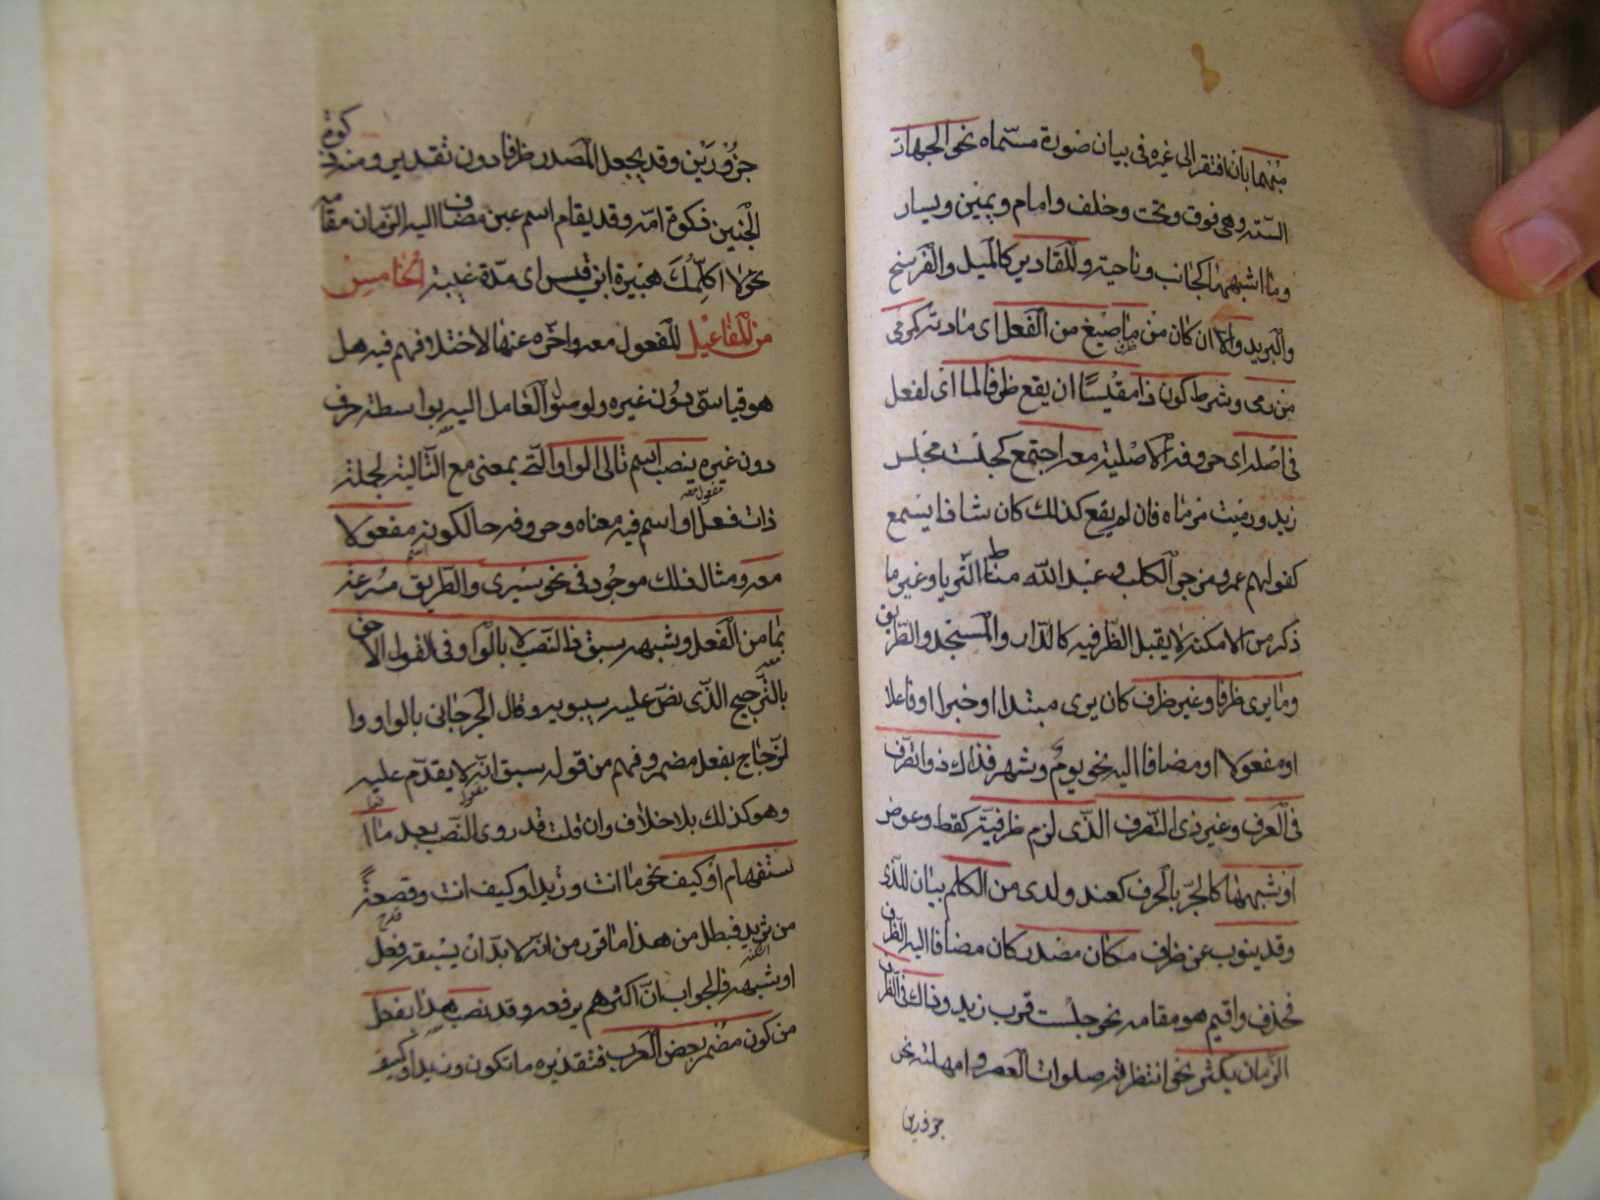 مبهما بأن افتقر الى غيره فى بيان صورة مسمّاه نحو الجهات
الستّ وهى فوق وتحت وخلف وامام ويمين ويسار
وما اشبهها كجانب وناحية والمقادير كالميل والفرسخ
والبريد والا ان كان من ما صيغ من الفعل اى مادته كرمى
من رمى وشرط كون ذا مقيسًا ان يقع ظرفا لما اى لفعل
فى اصله اى حروفه الاصلية معه اجتمع كجلست مجلس
زيد ورميت مرماه فان لم يقع كذلك كان شاذا يسمع
كقولهم عمرو مزجر الكلب و عبد الله مناط الثريا وغير ما
ذكر من الامكنة لا يقبل الظرفية كالدار والمسجد والطريق
وما يرى ظرفا وغير ظرف كان يرى مبتدا او خبرا او فاعلا
او مفعولا او مضافا اليه نحو يوم وشهر فذاك ذو تصرّف
فى العرف وغير ذى التصرف الذى لزم ظرفية كقط وعوض
او شبهها كالجرّ بالحرف كعند ولدى من الكلم بيان للذى
وقد ينوب عن ظرف مكان مصدر كان مضافا اليه الظرف
فحذف واقيم هو مقامه نحو جلست قرب زيد وذاك فى الظرف
الزمان يكثر نحو انتظرته صلوات العصر و امهلته نحر
جزورين
جزورين وقد يجعل المصدر ظرفا دون تقدير ومنه ذكوة
الجنين ذكوة امّه وقد يقام اسم عين مضاف اليه الزمان مقامه
نحو لا اكلّمك هبيرة ابن قيس اى مدّة غيبته الخامس
من المفاعيل المفعول معه واخّره عنها لاختلافهم فيه هل
هو قياسىّ دون غيره ولوصول العامل اليه بواسطة حرف
دون غيره ينصب اسم تالى الواو التى بمعنى مع التالية لجملة
ذات فعل او اسم فيه معناه وحروفه حال كونه مفعولا
معه ومثال ذلك موجود فى نحو سيرى والطريق مسرعة
بما من الفعل وشبهه سبق ذا النصب لا بالواو فى القول الاحق
بالترجيح الذى نصّ عليه سيبويه وقال الجرجانى بالواو وا
لزجاج بفعل مضمر وفهم من قوله سبق انه لا يقدّم عليه
وهو كذلك بلا خلاف وان قلت قد روى النصب بعد ما ا
ستفهام او كيف نحو ما انت وزيدا وكيف انت وقصعة
من ثريد فبطل من هذا ما قرر من انه لا بد ان يسبقه فعل
او شبهه فالجواب انّ اكثرهم يرفعه وقد نصب هذا بفعل
من كون مضمر بعض العرب فتقديره ما تكون وزيدا وكيف